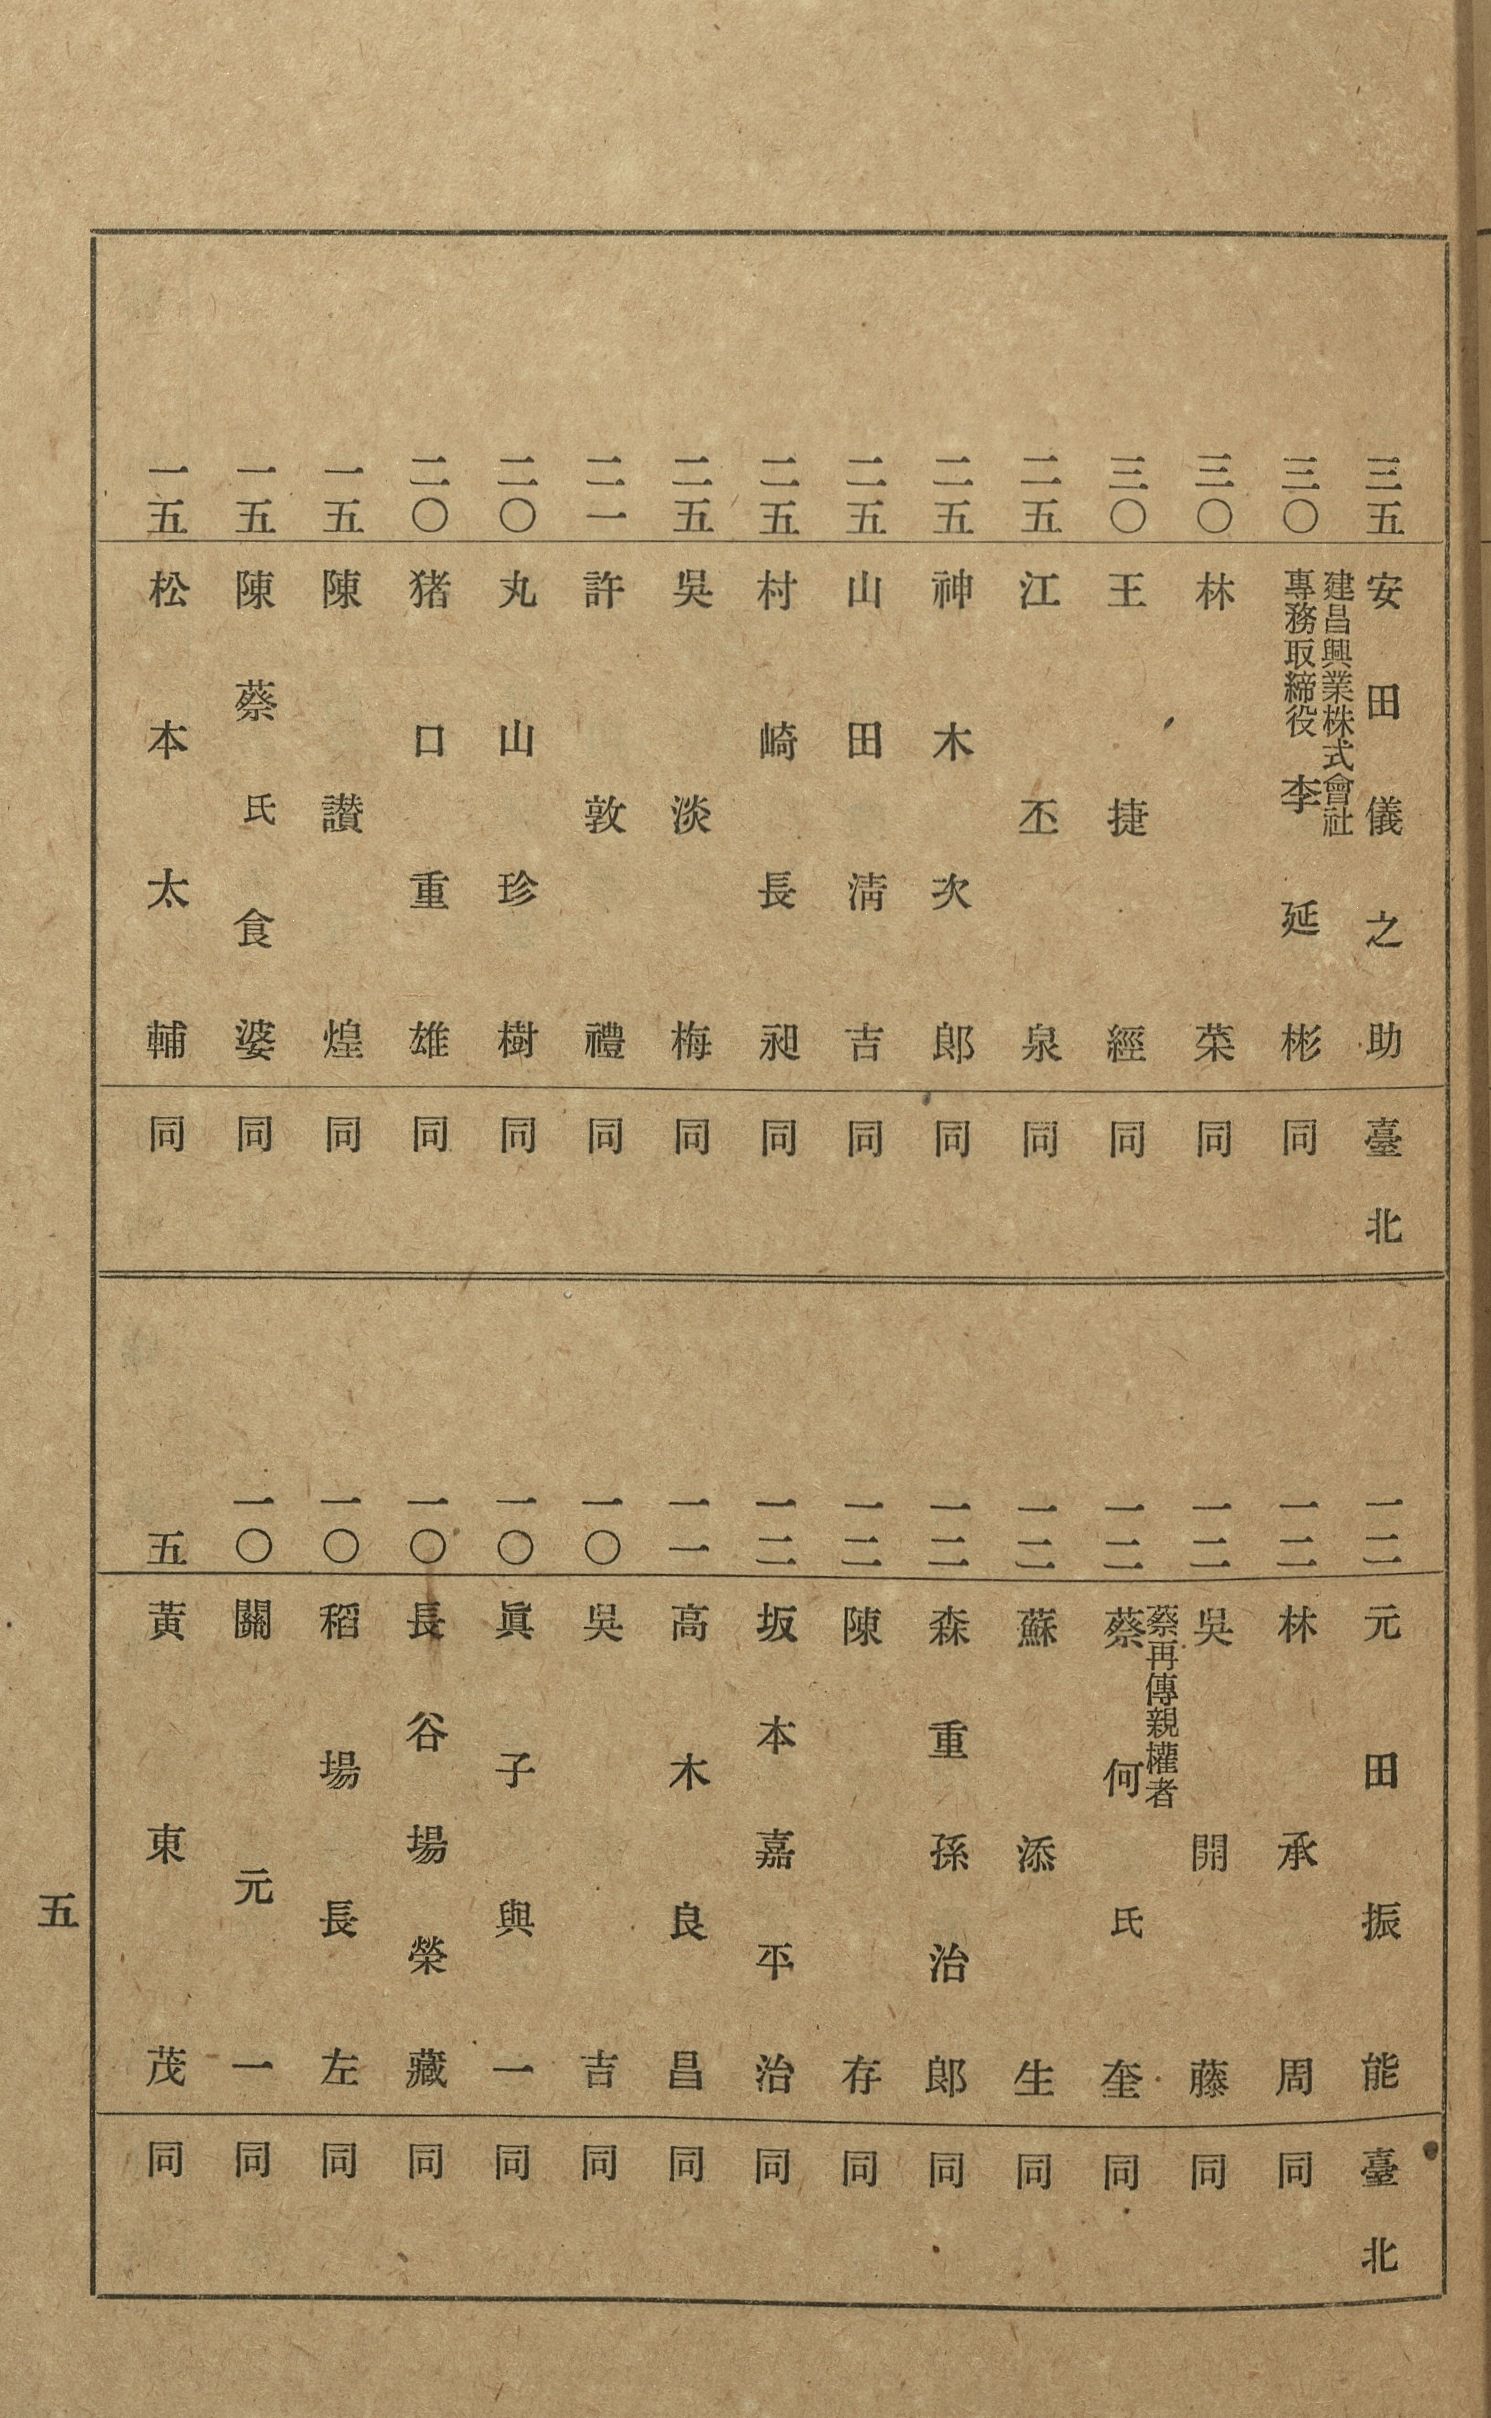 三五 安田儀之助 臺北
三〇 建昌興業株式會社專務取締役 李延彬 同
三〇 林榮 同
三〇 王捷經 同
二五 江丕泉 同
二五 神木次郎 同
二五 山田淸吉 同
二五 村崎長昶 同
二五 吳淡梅 同
二一 許敦禮 同
二〇 丸山珍樹 同
二〇 猪口重雄 同
一五 陳讚煌 同
一五 陳蔡氏食婆 同
一五 松本太輔 同
一二 元田振能 臺北
一二 林承周 同
一二 吳開藤 同
一二 蔡再傳親權者 蔡何氏奎 同
一二 蘇添生 同
一二 森重孫治郎 同
一二 陳存 同
一二 坂本嘉平治 同
一一 高木良昌 同
一〇 吳吉 同
一〇 眞子與一 同
一〇 長谷場榮藏 同
一〇 稻場長左 同
一〇 關元一 同
五 黃東茂 同
五